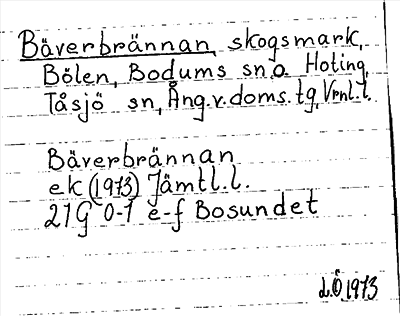 Bäverbrännan, skogsmark,
Bölen, Bodums sn o. Hoting,
Tåsjö sn, Ång.v.doms.tg, Vrnl.t.
Bäverbrännan
ek (1973) Jämtl.l.
21G 0-1 e-f Bosundet
L.Ö 1973